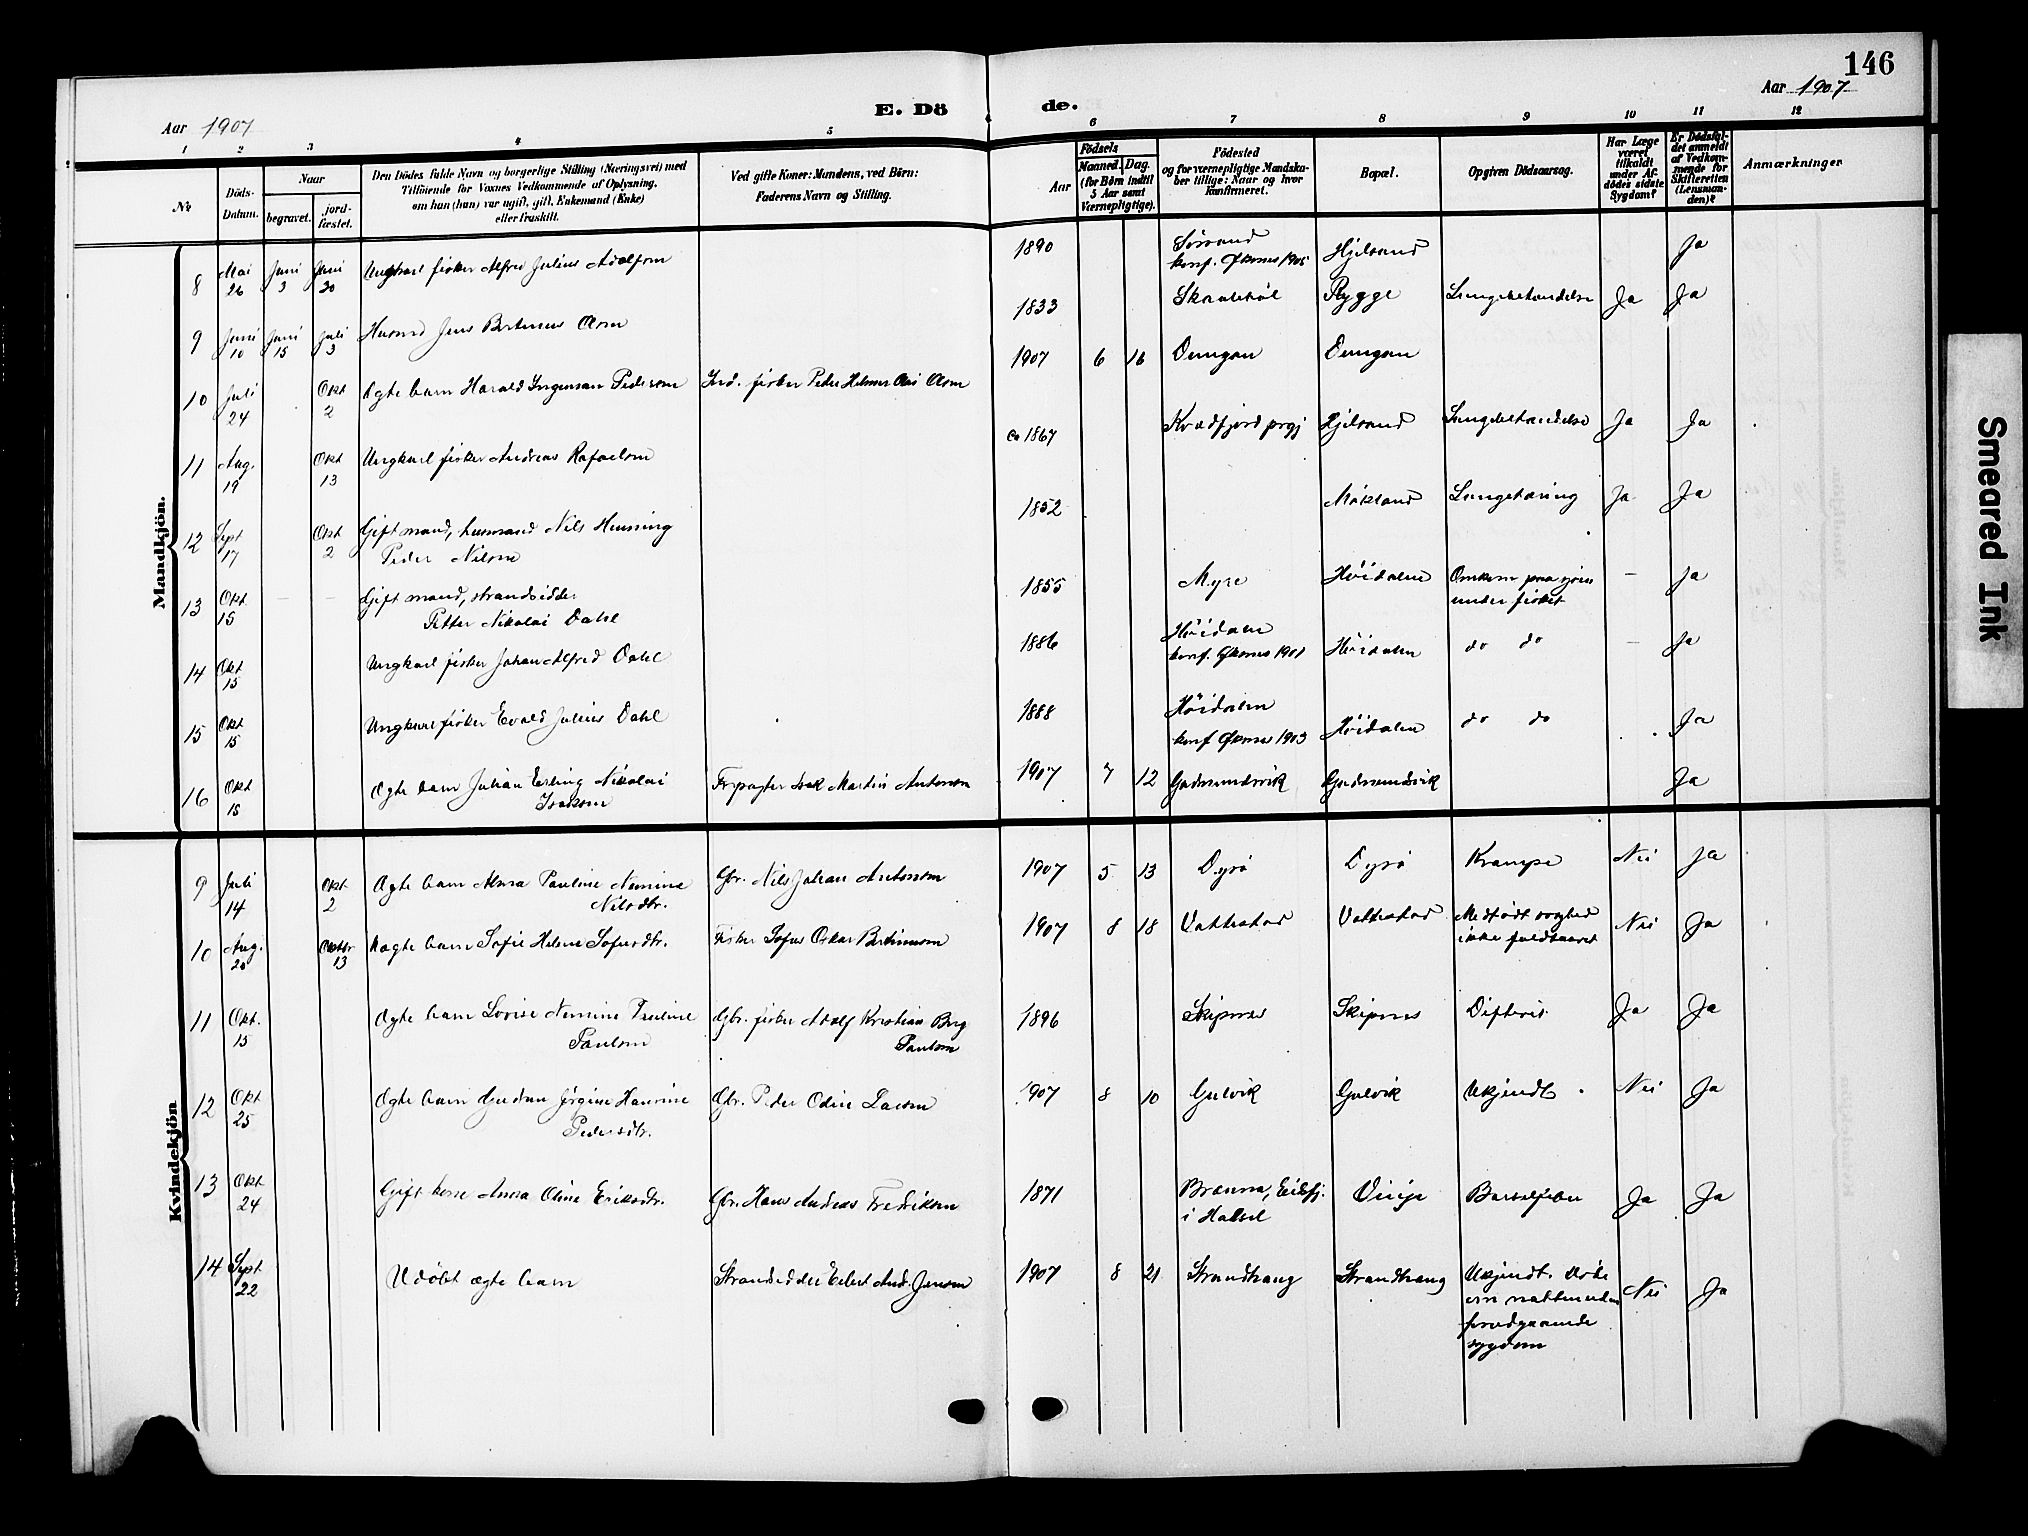 146
Aar 1907
E. Dö de.
Aar 1907
1 2 3 4 5 6 7 8 9 10 11 12
No
Döds-
Datum.
Naar
begravet.
jord-
fæstet.
Den Dödes fulde Navn og borgerlige Stilling (Næringsvei) med
Tilföiende for Voxnes Vedkommende af Oplysning,
om han (hun) var ugift, gift, Enkemand (Enke)
eller fraskilt.
Ved gifte Koner: Mandens, ved Börn:
Faderens Navn og Stilling.
Födsels
Aar
Maaned. Dag.
(for Börn indtil
5 Aar samt
Værnepligtige).
Födested
og for værnepligtige Mandska-
ber tillige: Naar og hvor
konfirmeret.
Bopæl.
Opgiven Dödsaarsag.
Har Læge
været
tilkaldt
under Af-
dödes sidste
Sygdom?
Er Dödsfal-
det anmeldt
af Vedkom-
mende for
Skifteretten
(Lensman-
den)?
Anmærkninger
Mandkjön.
8 Mai 26 Juni 3 Juni 30 Ungkarl fisker Alfred Julius Adolfsen 1890 konf. Øksnes 1905 Hjelsand Ja
9 Juni 10 Juni 15 Juli 3 Husmd Jens Bertinus Olsen 1833 Rygge Lungebetændelse Ja Ja
10 Juli 24 Okt 2 Ægte barn Harald Jørgensen Pedersen Ind. fisker Peder Helmer Olsen 1907 6 16
11 Aug. 19 Okt 13 Ungkarl fisker Andreas Rafaelsen Ca 1867 Kvædfjord prgj Hjelsand Lungebetændelse Ja Ja
12 Sept 17 Okt 2 Gift mand, husmand Nils Henning
Peder Nilsen 1852 Møkland Lungetæring Ja Ja
13 Okt 15 – – Gift mand, strandsidder
Petter Nikolai Dahl 1855 Myre Höidalen Omkom paa sjøen
under fisket – Ja
14 Okt 15 Ungkarl fisker Johan Alfred Dahl 1886 Höidalen
konf. Øksnes 1901 Höidalen do do – Ja
15 Okt 15 Ungkarl fisker Evald Julius Dahl 1888 Höidalen
konf Øksnes 1903 Höidalen do do Ja
16 Okt 15 Ægte barn Julian Erling Nikolai
Isaksen Forpagter Isak Martin Antonsen 1907 7 12 Gudmundsvik Gudmundsvik Ja
Kvindekjön
9 Juli 14 Okt 2 Ægte barn Alma Pauline Nemine
Nilsdtr. Gbr. Nils Johan Antonsen 1907 5 13 Dyrø Dyrø Krampe Nei Ja
10 Aug. 20 Oktbr 13 Uægte barn Sofie Helene Sofusdtr. Fisker Sofus Oskar Bertinusen 1907 8 18 Vottestad Vottestad Medfödt svaghed
ikke fuldbaaret Nei Ja
11 Okt. 15 Ægte barn Lovise Nemine Pauline
Paulsen Gbr. fisker Adolf Kristian Berg
Paulsen 1896 Skipnes Skipnes Difteri Ja Ja
12 Okt 25 Ægte barn Gudrun Jørgine Hansine
Pedersdtr. Gbr. Peder Odin Larsen 1907 8 10 Gulvik Gulvik Ukjendt Nei Ja
13 Okt 24 Gift kone Anna Oline Eriksdtr. Gbr. Hans Andreas Fredriksen 1871 Brenna, Eidsfj.
i Hadsel Barselfeber Ja Ja
14 Sept 22 Udøbt ægte barn Strandsidder Edert And. Jensen 1907 8 21 Strandhaug Strandhaug Ukjendt. Døde
om natten uden
forudgaaende
sygdom Nei Ja
Smeared Ink